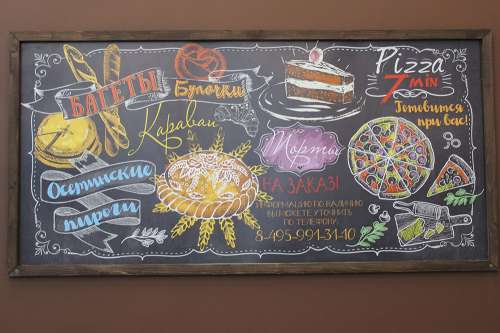 БАГЕТЫ
Булочки
Каравай
Осетинские
пироги
Торты
НА ЗАКАЗ!
ИНФОРМАЦИЮ ПО НАЛИЧИЮ
ВЫ МОЖЕТЕ УТОЧНИТЬ
ПО ТЕЛЕФОНУ:
8-495-991-31-10
Pizza
7 min
Готовится
при вас!